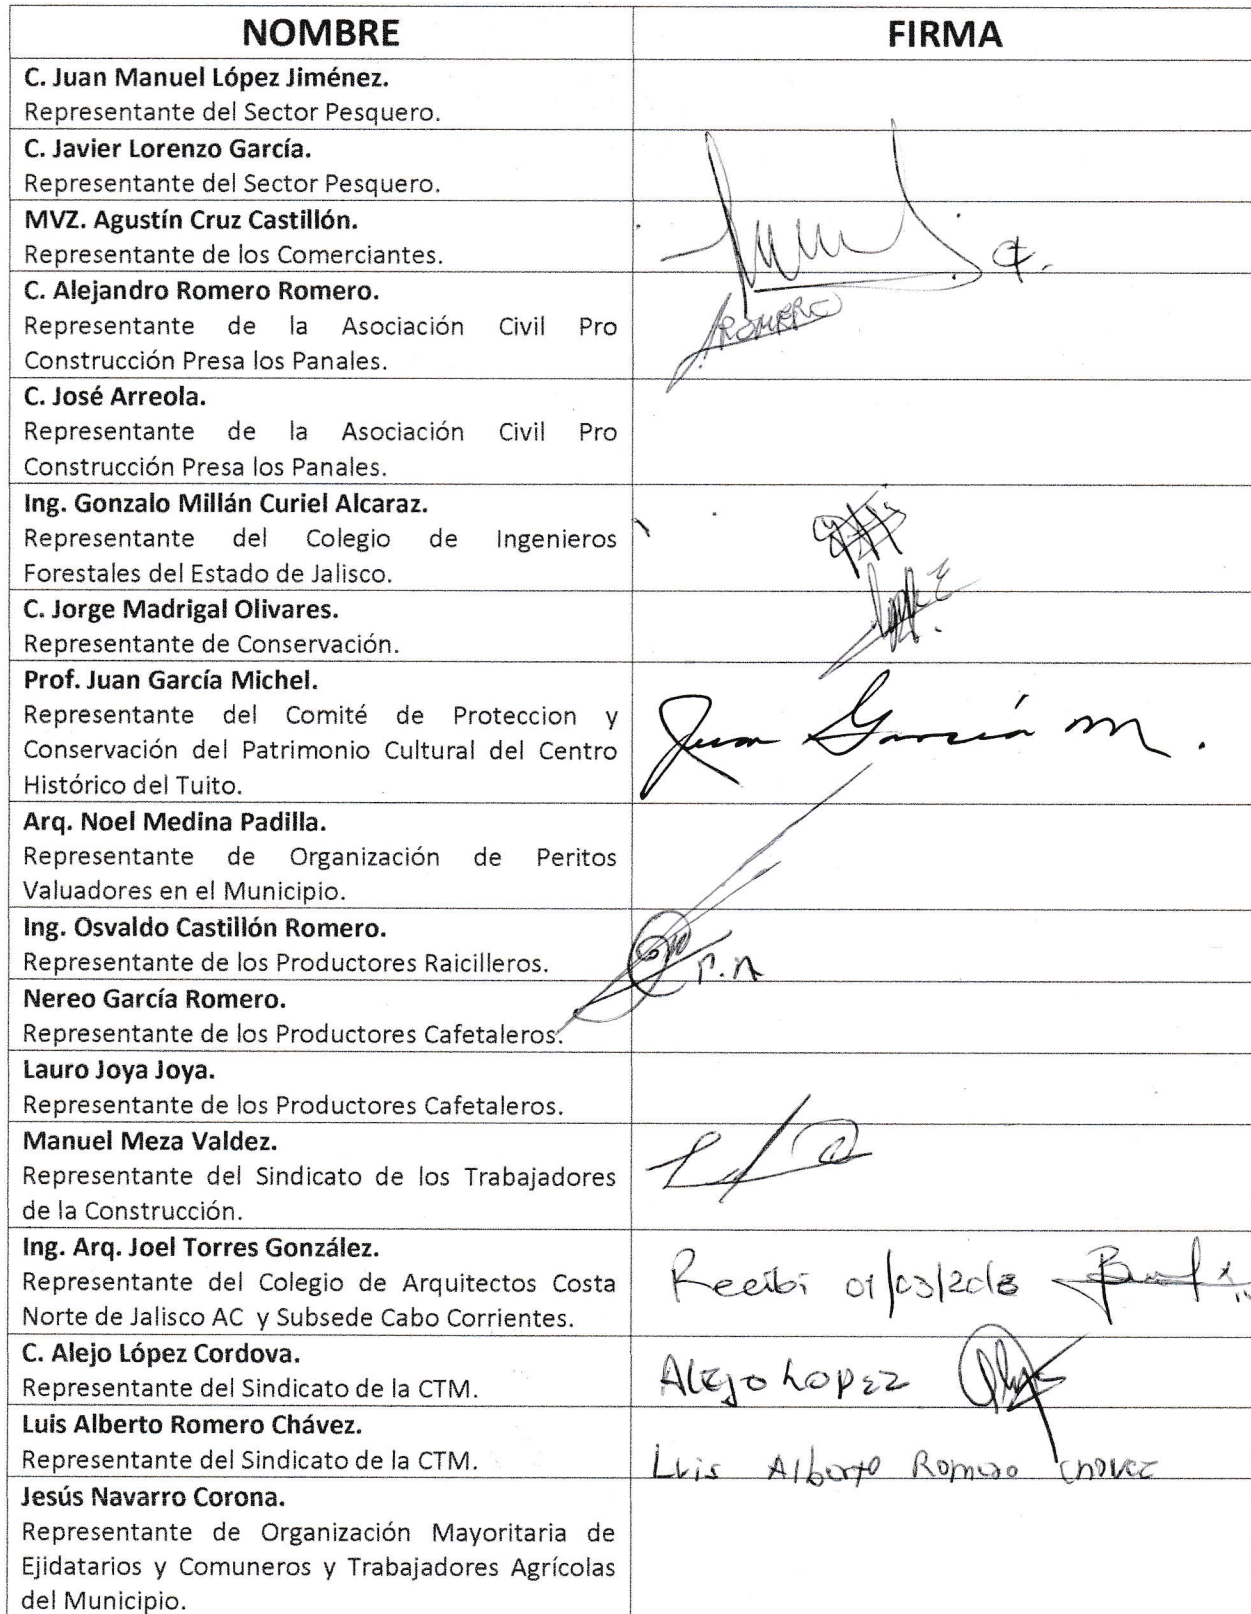 NOMBRE
FIRMA
C. Juan Manuel López Jiménez.
Representante del Sector Pesquero.
C. Javier Lorenzo García.
Representante del Sector Pesquero.
MVZ. Agustín Cruz Castillón.
Representante de los Comerciantes.
C. Alejandro Romero Romero.
Representante de la Asociación Civil Pro
Construcción Presa los Panales.
ROMERO
C. José Arreola.
Representante de la Asociación Civil Pro
Construcción Presa los Panales.
Ing. Gonzalo Millán Curiel Alcaraz.
Representante del Colegio de Ingenieros
Forestales del Estado de Jalisco.
C. Jorge Madrigal Olivares.
Representante de Conservación.
Prof. Juan García Michel.
Representante del Comité de Proteccion y
Conservación del Patrimonio Cultural del Centro
Histórico del Tuito.
Juan García M.
Arq. Noel Medina Padilla.
Representante de Organización de Peritos
Valuadores en el Municipio.
Ing. Osvaldo Castillón Romero.
Representante de los Productores Raicilleros.
P.A
Nereo García Romero.
Representante de los Productores Cafetaleros.
Lauro Joya Joya.
Representante de los Productores Cafetaleros.
Manuel Meza Valdez.
Representante del Sindicato de los Trabajadores
de la Construcción.
Ing. Arq. Joel Torres González.
Representante del Colegio de Arquitectos Costa
Norte de Jalisco AC y Subsede Cabo Corrientes.
Recibi 01/03/2013
C. Alejo López Cordova.
Representante del Sindicato de la CTM.
Alejo Lopez
Luis Alberto Romero Chávez.
Representante del Sindicato de la CTM.
Luis Alberto Romero Chavez
Jesús Navarro Corona.
Representante de Organización Mayoritaria de
Ejidatarios y Comuneros y Trabajadores Agrícolas
del Municipio.